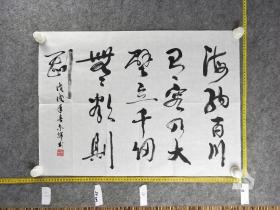 海纳百川
有容乃大
壁立千仞
無欲则
刚
戊戌年春